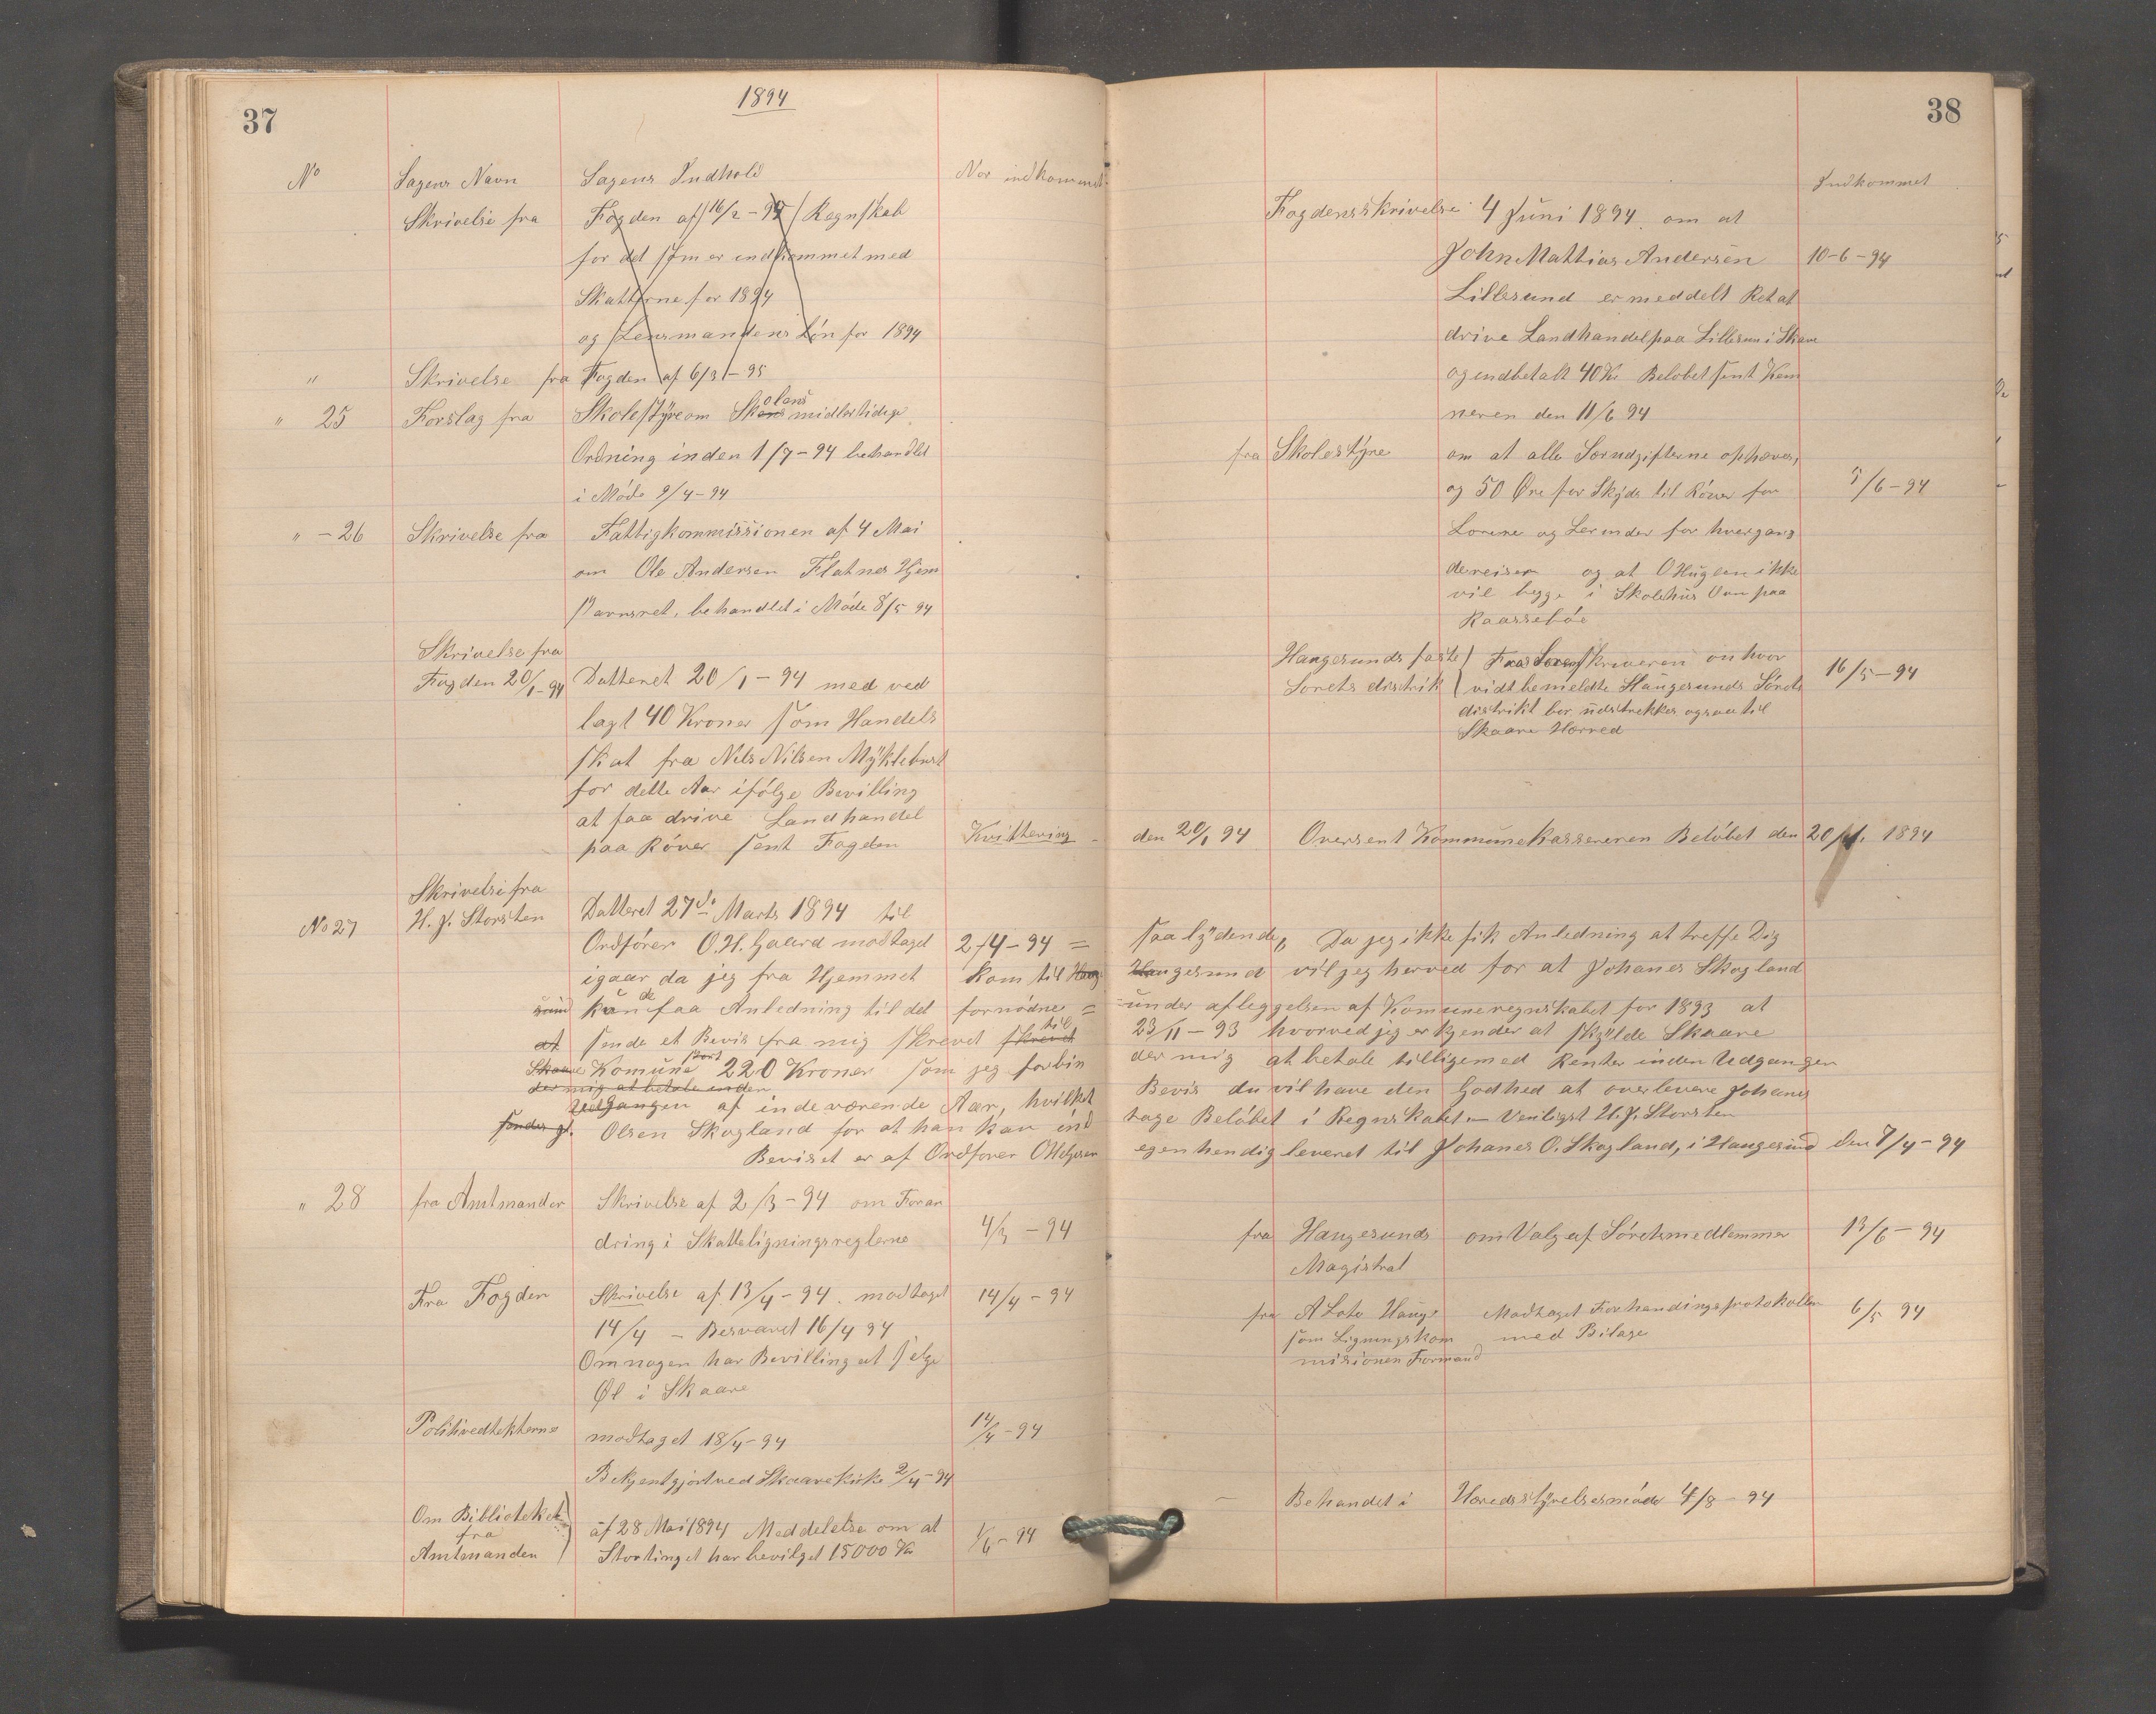 37
1894
No Sagens Navn Sagens Indhold Nor indkommet
Skrivelse fra Fogden af 16/2-95 Regnskab
for det som er indkommet med
Skatterne for 1894
og Lensmandens Lón for 1894
" Skrivelse fra Fogden af 6/3-95
" 25 Forslag fra Skolestyre om Skolens midlertidige
Ordning inden 1/7-94 behandlet
i Móde 9/4-94
" - 26 Skrivelse fra Fattigkommissionen af 4 Mai
om Ole Andersen Flatnes Hjem
stavnsret, behandlet i Móde 8/5 94
Skrivelse fra
Fogden 20/1-94 Datteret 20/1-94 med ved
lagt 40 Kroner som Handels
skat fra Nils Nilsen Myklebust
for dette Aar ifólge Bevilling
at faa drive Landhandel
paa Róver sent Fogden Kvittering -
Skrivelse fra
No 27 H. J. Storsten Datteret 27de Marts 1894 til
Ordfórer O. H. Gaard modtaget 2/4-94 =
igaar da jeg fra Hjemmet kom til Haug
sund kunde faa Anledning til det fornódne =
at sende et Bevis fra mig skrevet skrevet til
Skaare Komune stort 220 Kroner som jeg forbin
der mig at betale inden
Udgangen af indeværende Aar, hvilket
sender jt. Olsen Skogland for at han kan ind
Beviset er af Ordforer OHelgesen
" 28 fra Amtmanden Skrivelse af 2/3-94 om Foran
dring i Skatteligningsreglerne 4/3-94
Fra Fogden Skrivelse af 13/4-94. modtaget 14/4-94
14/4 - Besvaret 16/4 94
Om nogen har Bevilling at selge
Øl i Skaare
Politivedtekterne modtaget 18/4-94 14/4-94
Bekjentgjort ved Skaare Kirke 2/4-94
Om Biblioteket
fra af 28 Mai 1894 Meddelelse om at 1/6-94
Amtmanden Stortinget har bevilget 15000 Kr
38
Indkommet
Fogdens skrivelse 4 Juni 1894. om at
John Mattias Andersen 10-6-94
Lillesund er meddelt Ret at
drive Landhandel paa Lillesun i Skare
og endbetalt 40 Kr Belobet sent Kem
neren den 11/6 94
fra Skolestyre om at alle Sorudgifterne ophæves,
og 50 Øre for Skyds til Róver for 5/6-94
Lorere og Lerinder for hvergang
de reiser og at OHuglen ikke
vil bygge i Skolehus Ovn paa
Haugesunds faste Fra Sorenskriveren on hvor 16/5-94
Sorets distrik vidt bemeldte Haugesunds Sórets
distrikt bor udstrekkes ogsaa til
Skaare Herred
den 20/1 94 Oversent Kommunekassereren Belóbet den 20/1. 1894
saa lydende, Da jeg ikke fik Anledning at treffe Dig
Haugesund vil jeg herved for at Johanes Skogland
under afleggelsen af Komuneregnskabet for 1893 at
23/11-93 hvorved jeg erkjender at skylde Skaare
der mig at betale tilligemed Renter inden Udgangen
Bevis du vil have den Godhed at overlevere Johanes
tage Belóbet i Regnskabet - Venligst H. J. Storsten
egenhendig leveret til Johanes O. Skogland, i Haugesund den 7/4-94
fra Haugesunds om Valg af Sóretsmedlemmer 13/6-94
Magistrat
fra A Loto Hauge Modtaget Forhandingsprotokollen 6/5 94
som Ligningskom med Bilage
misionen Formand
- Behandet i Heredsstyrelsesmóde 4/8-94